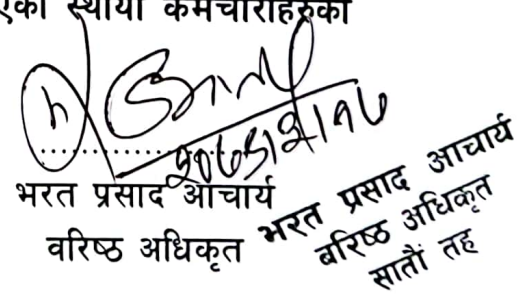 स्थायी कर्मचारीहरुको
भरत प्रसाद आचार्य
वरिष्ठ अधिकृत
भरत प्रसाद आचार्य
बरिष्ठ अधिकृत
सातौं तह